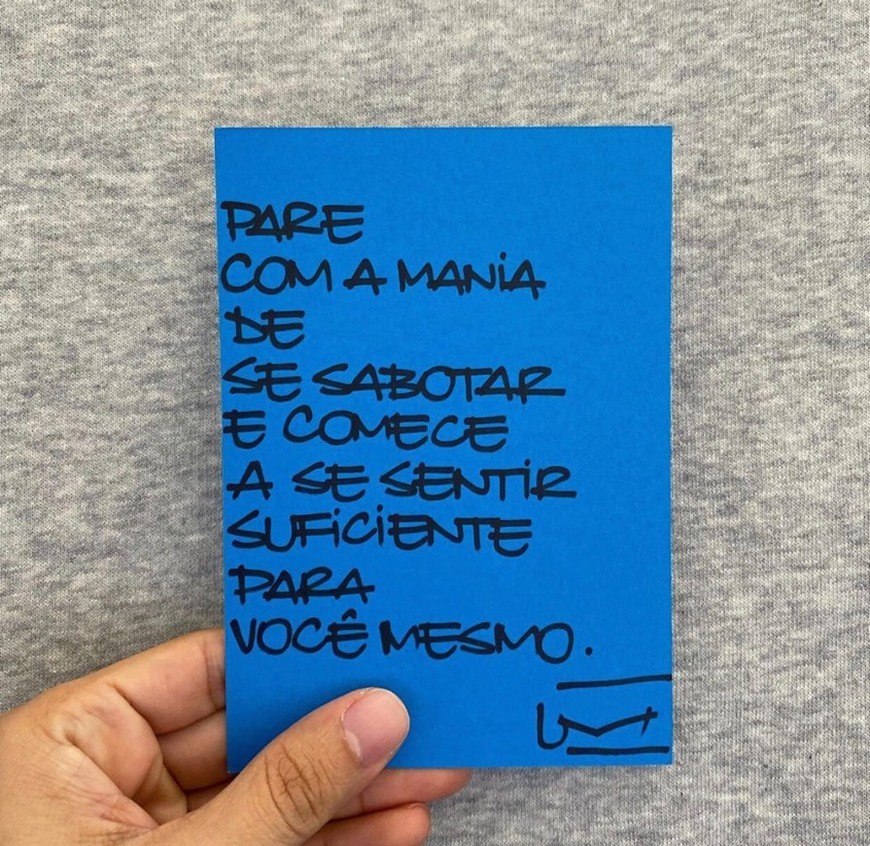 PARE
COM A MANIA
DE
SE SABOTAR
E COMECE
A SE SENTIR
SUFICIENTE
PARA
VOCÊ MESMO.